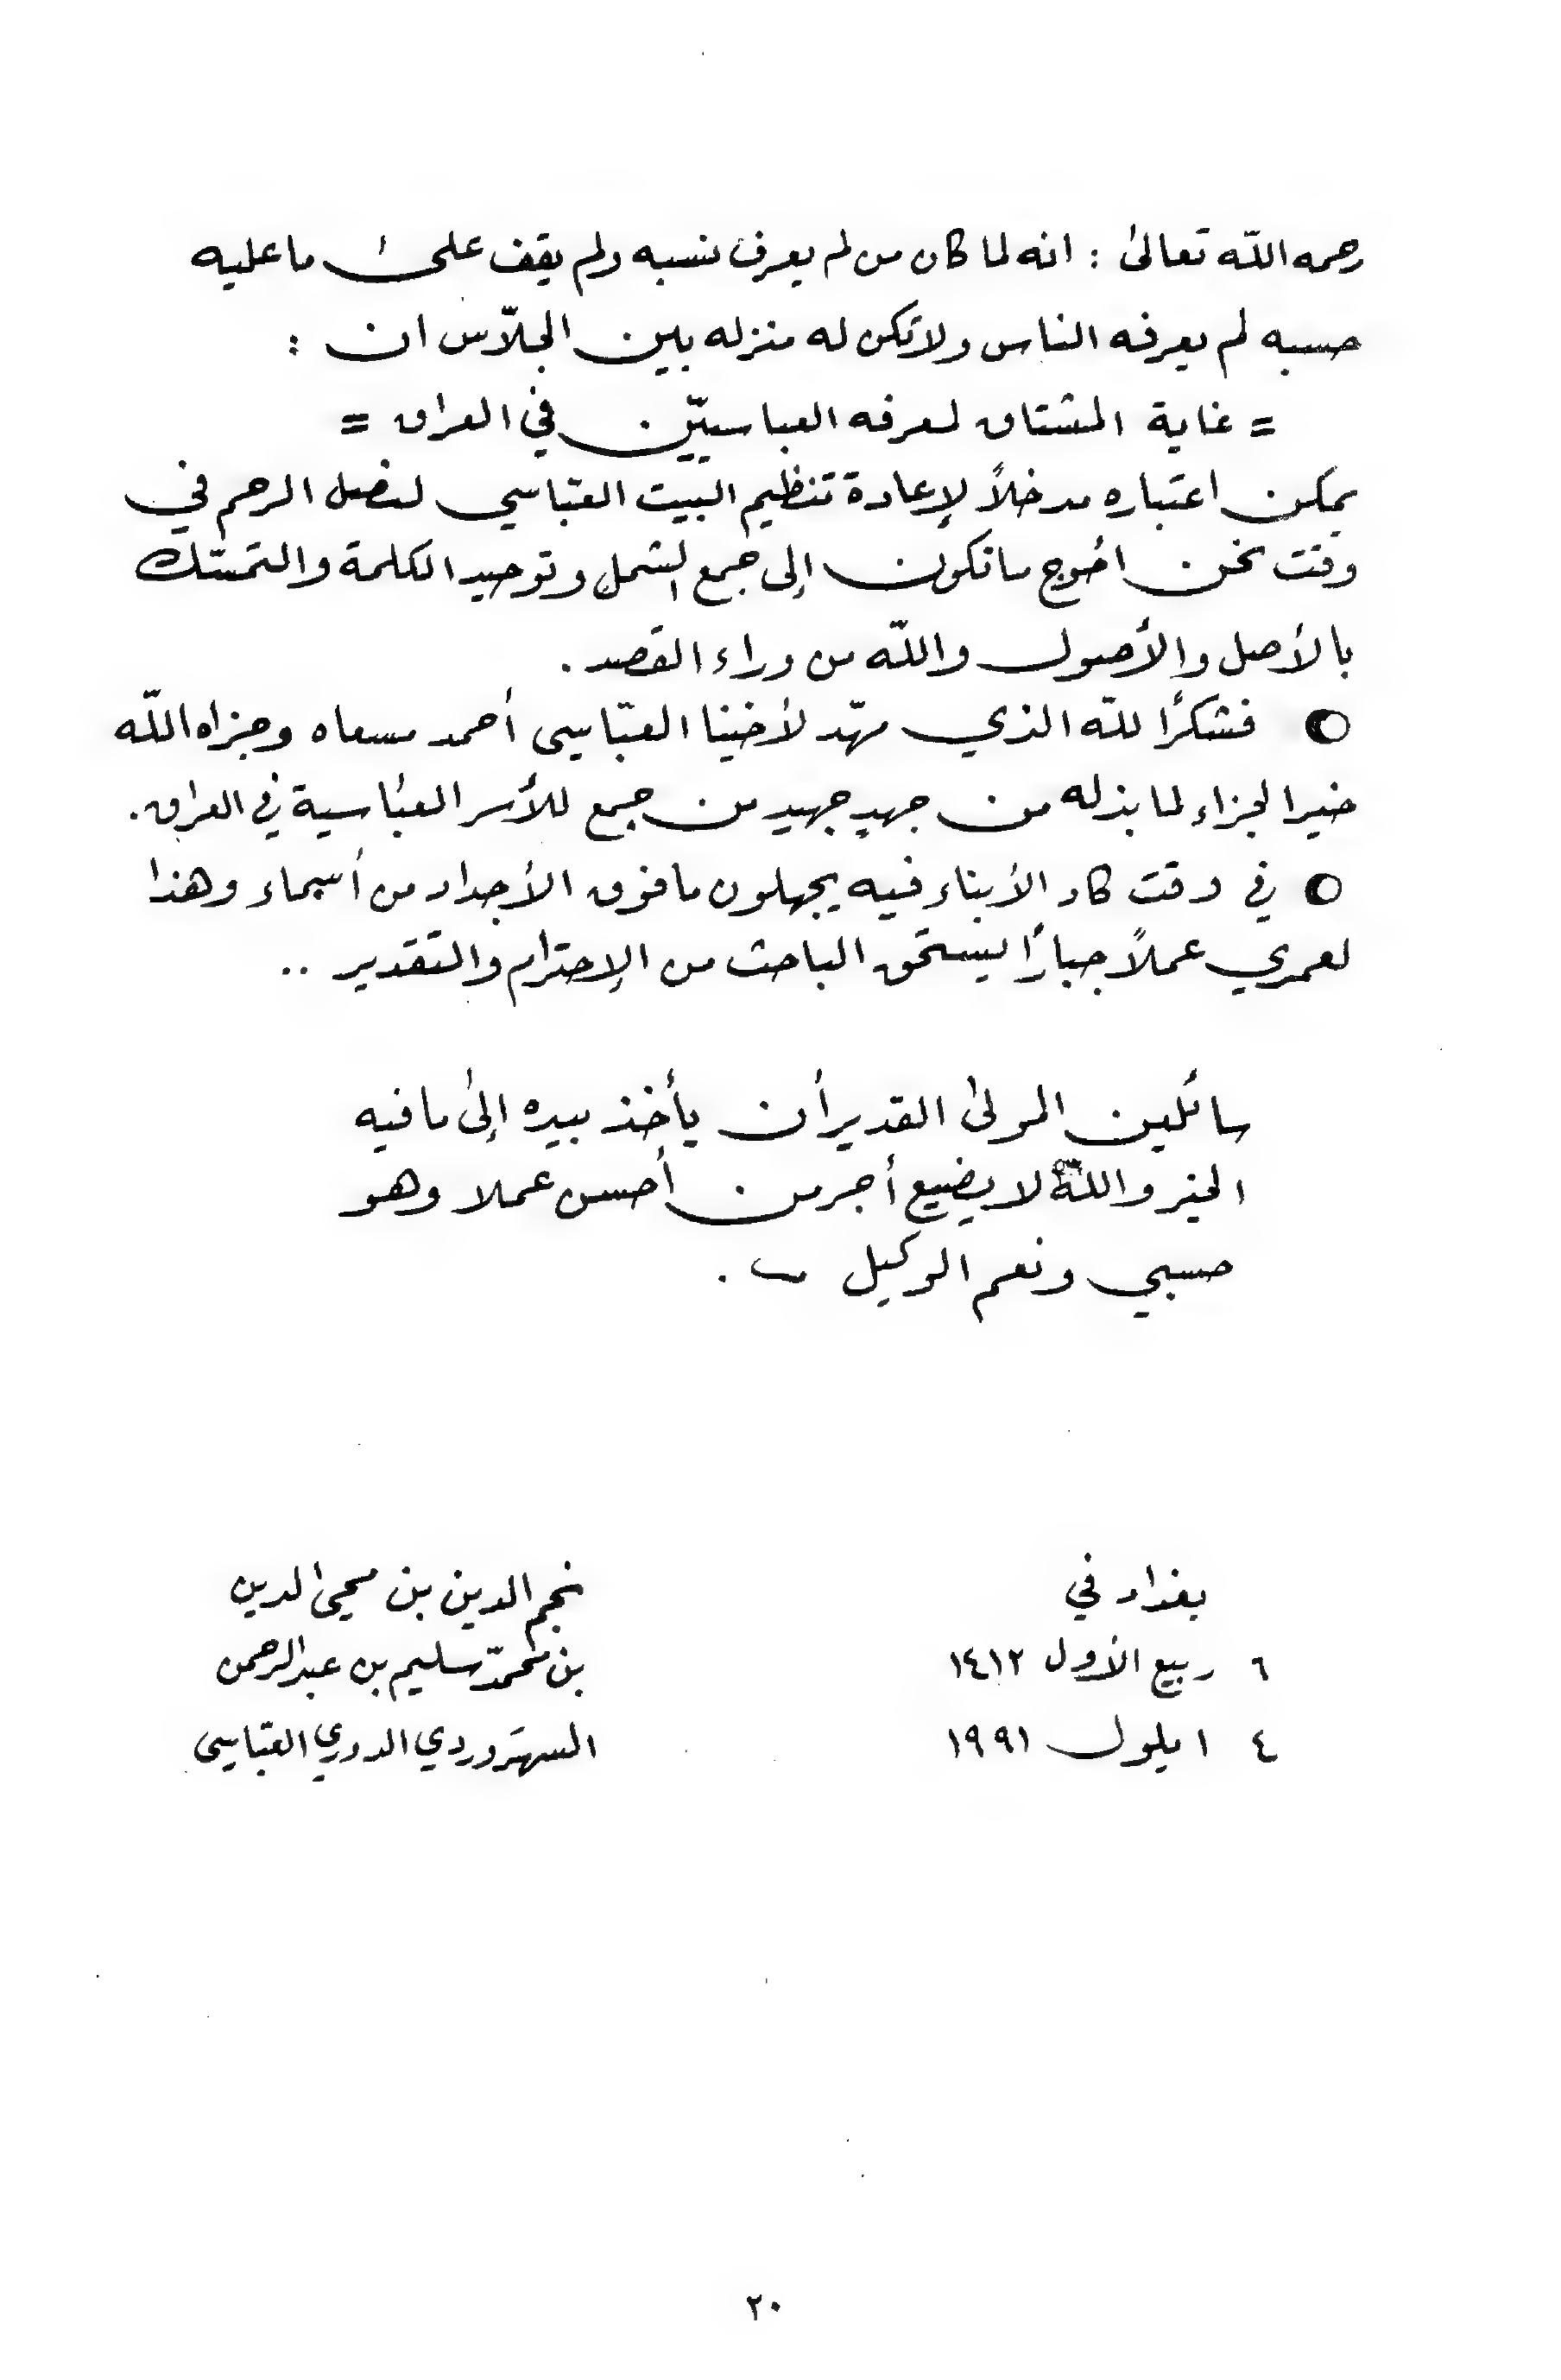 رحمه اللّه تعالىٰ : انه لما كان من لم يعرف نسبه ولم يقف علىٰ ما عليه
حسبه لم يعرفه الناس ولا تكن له منزله بين الجلاّس ان :
= غاية المشتاق لمعرفه العباسيّين في العراق =
يمكن اعتباره مدخلاً لإعادة تنظيم البيت العبّاسي لنصل الرحم في
وقت نحن احوج ما نكون إلى جمع الشمل وتوحيد الكلمة والتمسّك
بالأصل والأصول واللّه من وراء القصد .
● فشكرًا للّه الذي مهّد لأخينا العبّاسي أحمد مسعاه وجزاه اللّه
خير الجزاء لما بذله من جهدٍ جهيد من جمع للأسر العبّاسية في العراق .
● في وقت كاد الأبناء فيه يجهلون ما فوق الأجداد من أسماء وهذا
لعمري عملاً جبارًا ليستحق الباحث من الإحترام والتقدير ..
سائلين المولىٰ القدير أن يأخذ بيده إلىٰ ما فيه
الخير واللّه لا يضيع أجر من أحسن عملا وهو
حسبي ونعم الوكيل .
بغداد في
٦ ربيع الأول ١٤١٢
٤ ايلول ١٩٩١
نجم الدين بن محيى الدين
بن محمّد سليم بن عبد الرحمن
السهروردي الدوري العبّاسي
٢٠